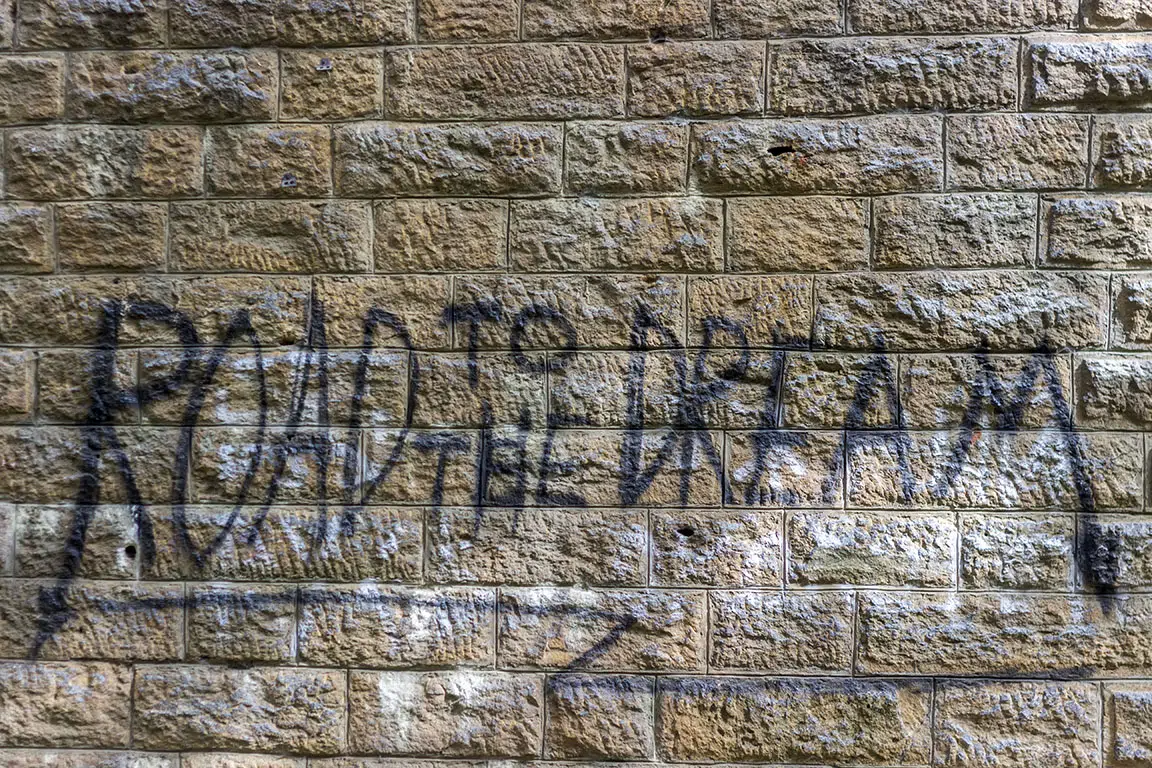 ROAD TO THE DREAM